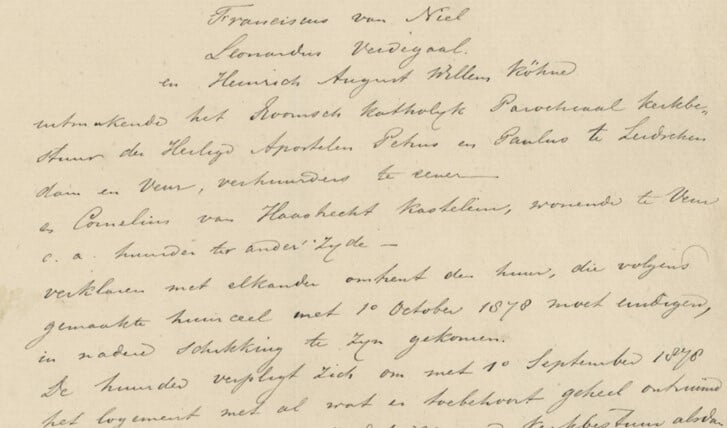 Franciscus van Niel
Leonardus Verdegaal.
en Heinrich August Willem Köhne
uitmakende het Roomsch Katholyk Parochiaal kerkbe=
stuur der Heilige Apostelen Petrus en Paulus te Leidschen
dam en Veur, verhuurders te eener —
en Cornelius van Haastrecht kastelein, wonende te Veur
c. a. huurder ter ander Zyde —
verklaren met elkander omtrent den huur, die volgens
gemaakte huurceel met 1o October 1878 moet eindigen,
in nadere schikking te zyn gekomen.
De huurder verpligt zich om met 1o September 1878
het logement met al wat er toebehoort geheel ontruimd
kerkbestuur alsdan